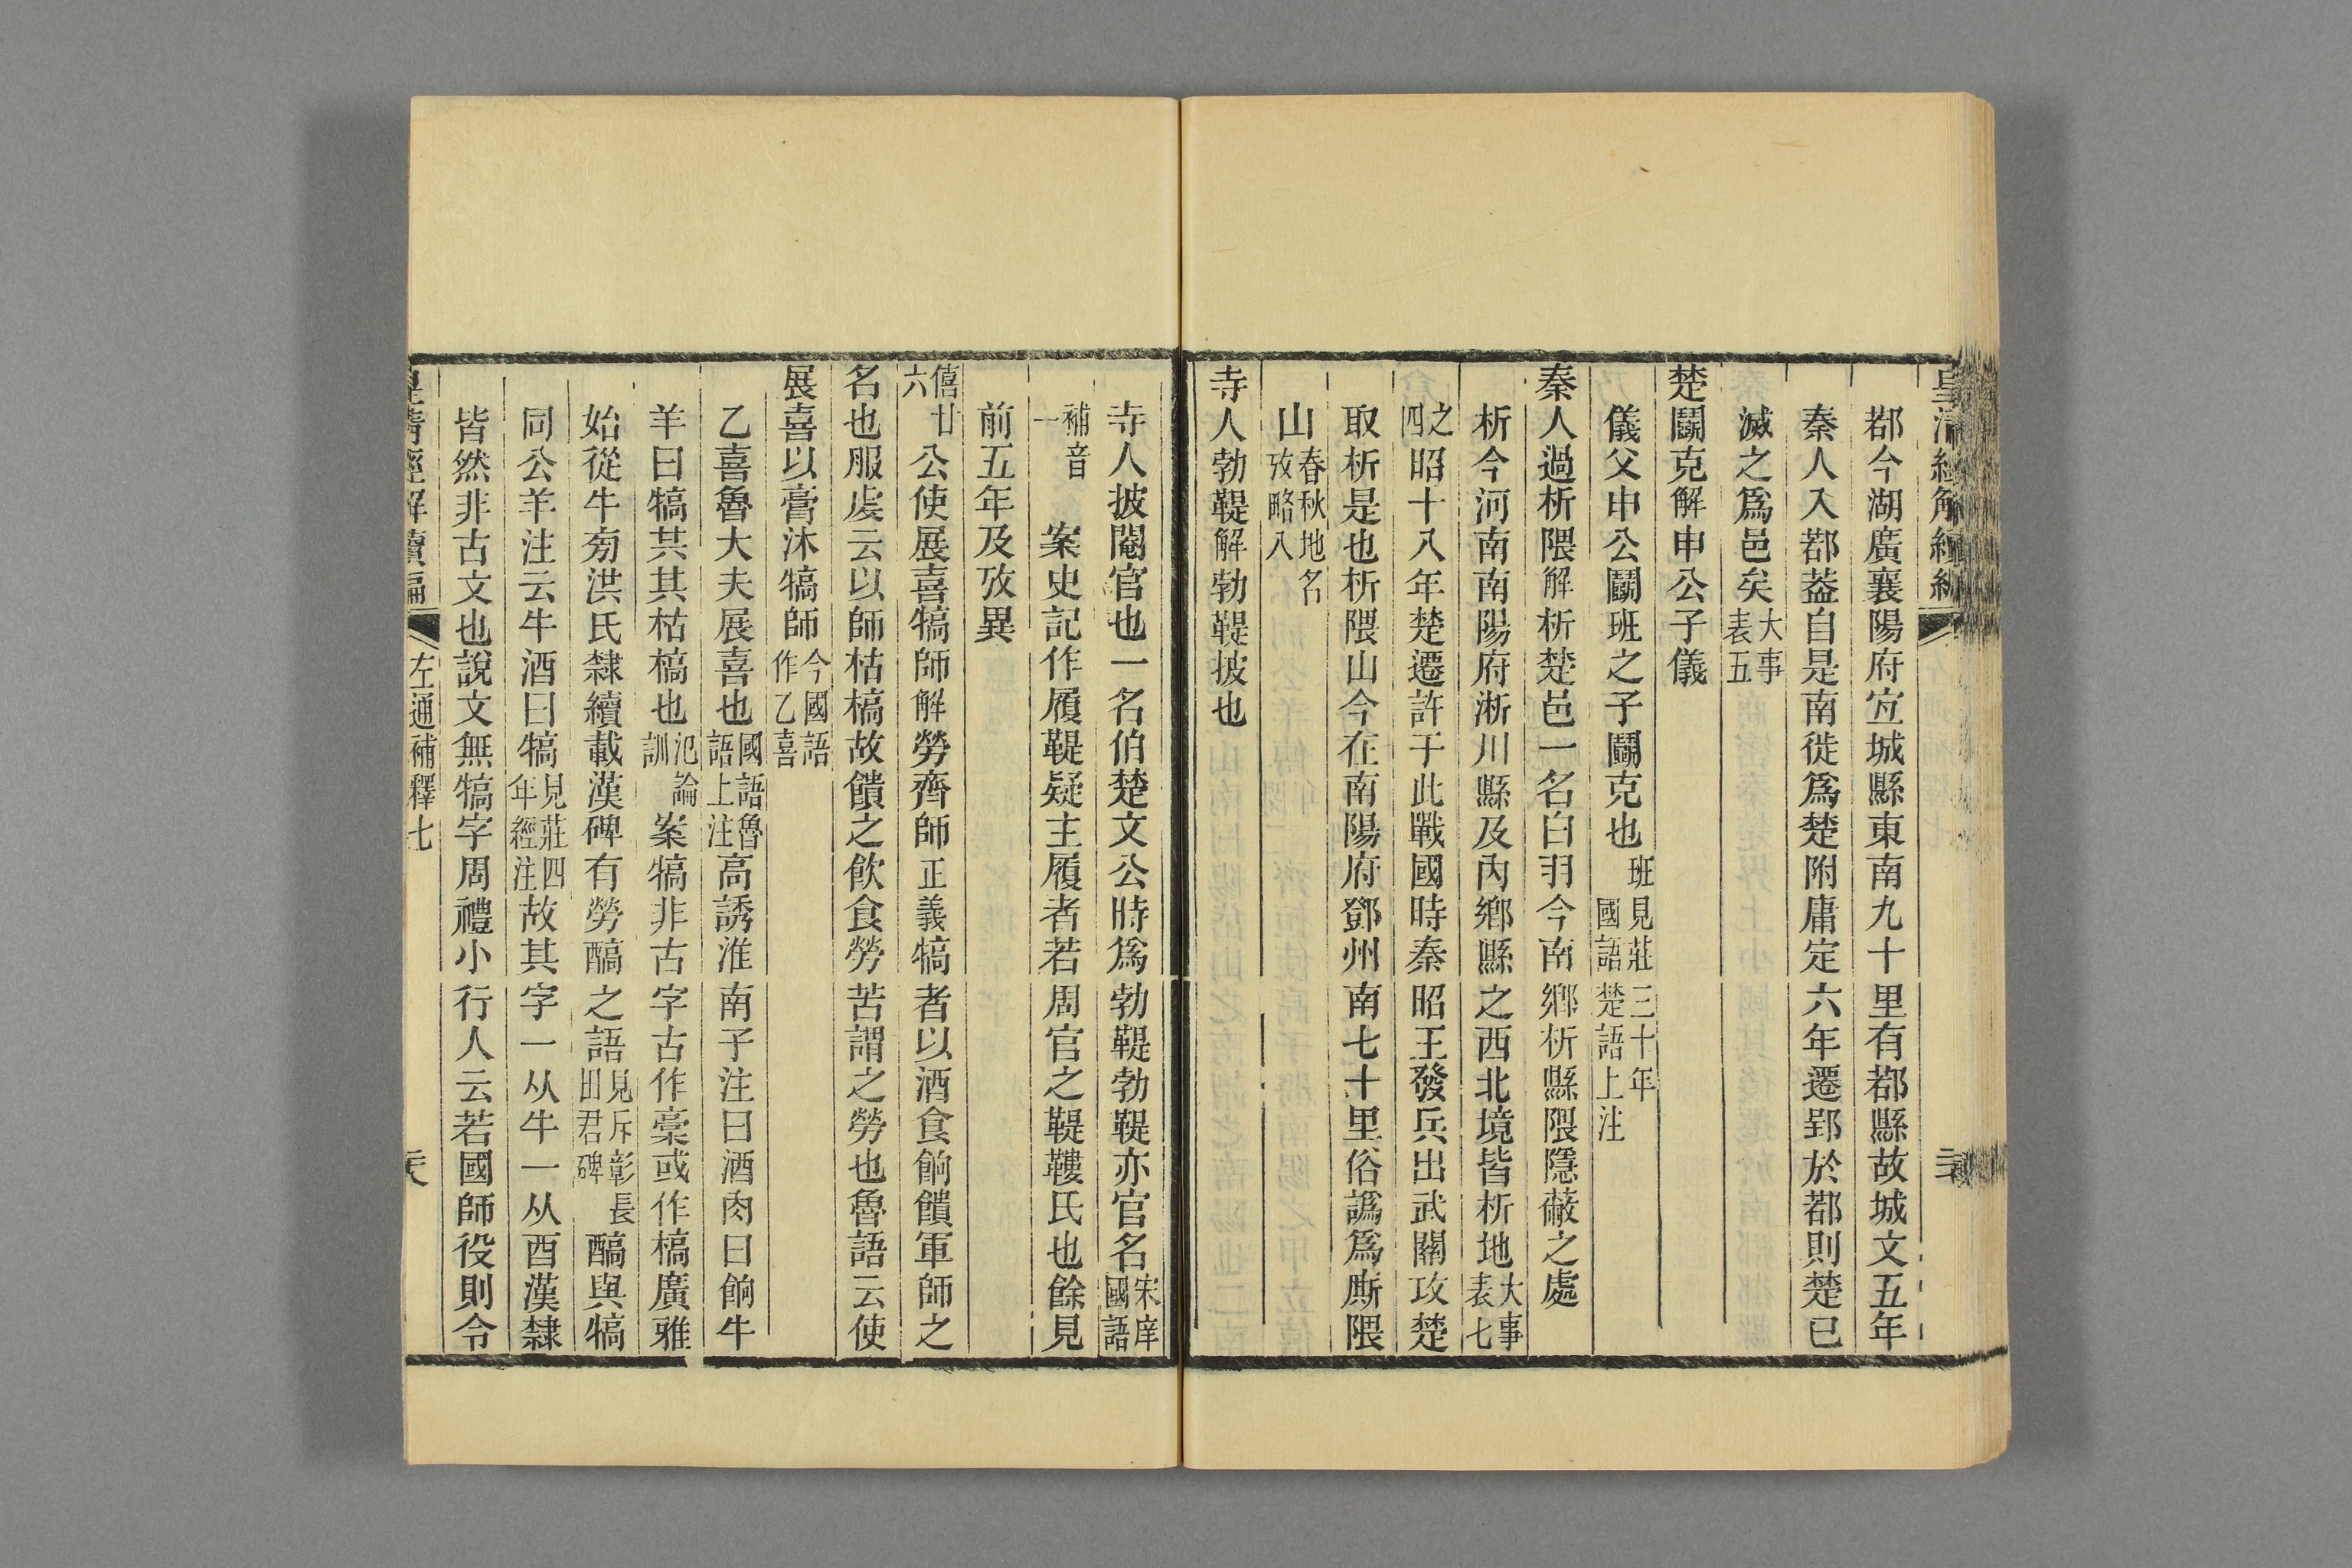 鄀今湖廣襄陽府宜城縣東南九十里有鄀縣故城文五年
秦人入鄀葢自是南徙爲楚附庸定六年遷郢於鄀則楚已
滅之爲邑矣大事表五
楚鬭克解申公子儀
儀父申公鬭班之子鬭克也班見莊三十年國語楚語上注
秦人過析隈解析楚邑一名白羽今南鄉析縣隈隱蔽之處
析今河南南陽府淅川縣及內鄉縣之西北境皆析地大事表七
之四昭十八年楚遷許于此戰國時秦昭王發兵出武關攻楚
取析是也析隈山今在南陽府鄧州南七十里俗譌爲厮隈
山春秋地名攷略八
寺人勃鞮解勃鞮披也
寺人披閹官也一名伯楚文公時爲勃鞮勃鞮亦官名宋庠國語
補音一案史記作履鞮疑主履者若周官之鞮鞻氏也餘見
前五年及攷異
僖廿六公使展喜犒師解勞齊師正義犒者以酒食餉饋軍師之
名也服虔云以師枯槁故饋之飲食勞苦謂之勞也魯語云使
展喜以膏沐犒師今國語作乙喜
乙喜魯大夫展喜也國語魯語上注高誘淮南子注曰酒肉曰餉牛
羊曰犒共其枯槁也氾論訓案犒非古字古作槀或作槁廣雅
始從牛旁洪氏隸續載漢碑有勞醕之語見斥彰長田君碑醕與犒
同公羊注云牛酒曰犒見莊四年經注故其字一从牛一从酉漢隸
皆然非古文也說文無犒字周禮小行人云若國師役則令
皇清經解續編 左通補釋七